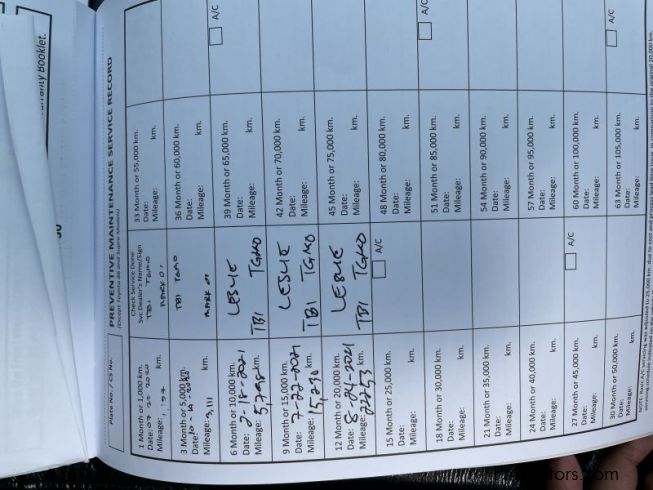 PREVENTIVE MAINTENANCE SERVICE RECORD
Plate No. / CS No.
Check Service Done
Svc Dealer's Name/Sign
1 Month or 1,000 km.
Date:
Mileage: km.
TBI TGMO
MARK
3 Month or 5,000 km.
Date:
Mileage: 3,111 km.
TBI TGMO
MARK
6 Month or 10,000 km.
Date: 2-18-2021
Mileage: 5,798 km.
LESLIE
TBI TGMO
9 Month or 15,000 km.
Date: 7-22-2021
Mileage: 15,230 km.
LESLIE
TBI TGMO
12 Month or 20,000 km.
Date:
Mileage: 22253 km.
LESLIE
TBI TGMO
15 Month or 25,000 km.
Date:
Mileage: km.
A/C
18 Month or 30,000 km.
Date:
Mileage: km.
21 Month or 35,000 km.
Date:
Mileage: km.
24 Month or 40,000 km.
Date:
Mileage: km.
27 Month or 45,000 km.
Date:
Mileage: km.
A/C
30 Month or 50,000 km.
Date:
Mileage: km.
33 Month or 55,000 km.
Date:
Mileage: km.
36 Month or 60,000 km.
Date:
Mileage: km.
39 Month or 65,000 km.
Date:
Mileage: km.
A/C
42 Month or 70,000 km.
Date:
Mileage: km.
45 Month or 75,000 km.
Date:
Mileage: km.
48 Month or 80,000 km.
Date:
Mileage: km.
51 Month or 85,000 km.
Date:
Mileage: km.
A/C
54 Month or 90,000 km.
Date:
Mileage: km.
57 Month or 95,000 km.
Date:
Mileage: km.
60 Month or 100,000 km.
Date:
Mileage: km.
63 Month or 105,000 km.
Date:
Mileage: km.
A/C
Booklet.